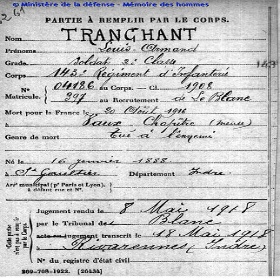 © Ministère de la défense - Mémoire des hommes
PARTIE À REMPLIR PAR LE CORPS.
Nom TRANCHANT
Prénoms Louis Armand
Grade Soldat 2e Classe
143e Régiment d'Infanterie
N° 04186 au Corps. — Cl. 1908
Matricule. 297 au Recrutement de Le Blanc
Mort pour la France le 20 Août 191
à Vaux Chapitre (Meuse)
Genre de mort Tué à l'ennemi
Né le 16 janvier 1888
à St Gaultier Département Indre
Arrt municipal (pr Paris et Lyon),
à défaut rue et N°.
Cette partie n'est pas à remplir par le Corps.
Jugement rendu le 8 Mai 1918
par le Tribunal de Blanc
acte ou jugement transcrit le 18 Mai 1918
à Rivarennes (Indre)
N° du registre d'état civil
209-708-1922. [26434]